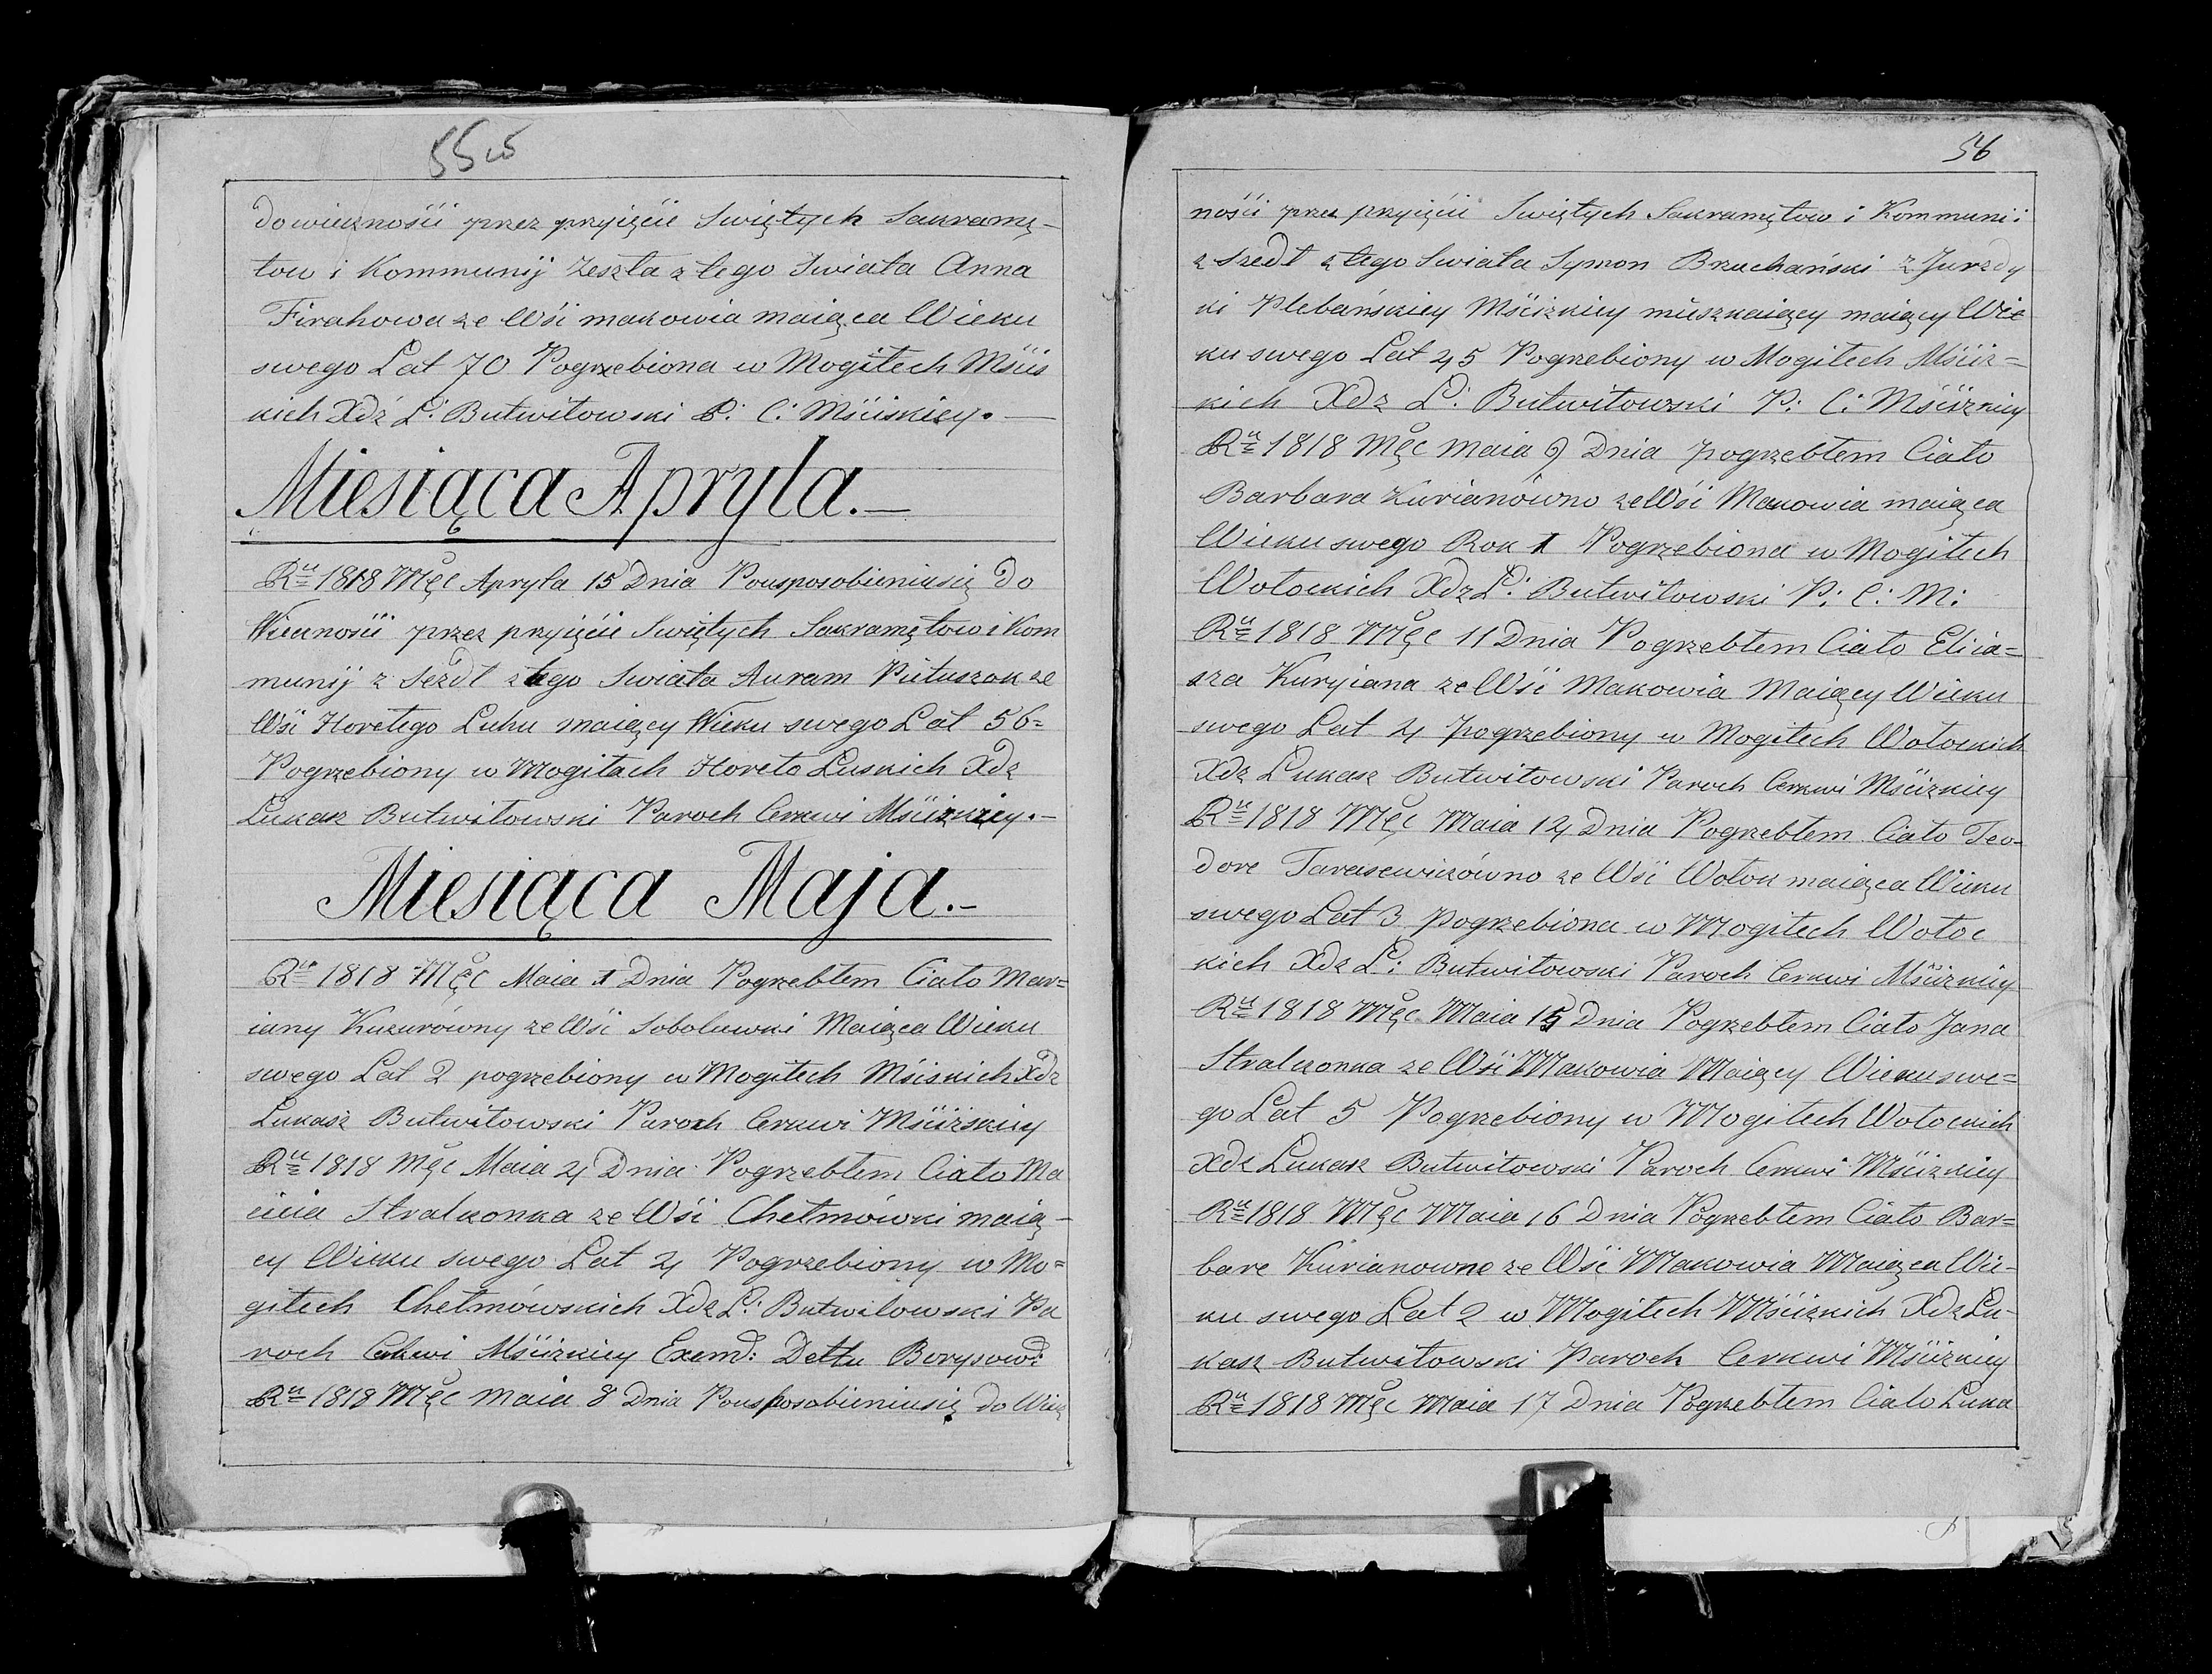 55 об
do wiecznośći przez przyięćie Swiętych Sakramę-
tow i Kommunij Zeszła z tego Swiata Anna
Firahowa ze Wśi makowia maiąca Wieku
swego Lat 70 Pogrzebiona w Mogiłech Mśćis
kich Xdź Ł: Butwiłowski P: C: Mśćiskiey.—
Miesiąca Apryla.—
Ru 1818 Męc Apryla 15 Dnia Pousposobieniusię do
Wiecnośći przez przyięćie Swiętych Sakramętow i Kom
munij z Szedł z tego Swiata Auram Pietuszok ze
Wśi Horełego Luhu maiący Wieku swego Lat 56=
Pogrzebiony w Mogiłach Horeło Luskich Xdz
Łukasz Butwiłowski Paroch Cerkwi Mśćizkiey.—
Miesiąca Maja.—
Ru 1818 Męc Maia 1 Dnia Pogrzebłem Ciało Mar=
iany Kuzurówny ze Wśi Soboluwki Maiąca Wieku
swego Lat 2 pogrzebiony w Mogiłech Mśiskich Xdz
Łukasz Butwiłowski Paroch Cerkwi Mśćizskiey
Ru 1818 Męc Maia 4 Dnia Pogrzebłem Ciało Ma
ćieia Stralczonka ze Wśi Chełmówki maią-
cy Wieku swego Lat 4 Pogrzebiony w Mo=
giłech Chełmówskich Xdz Ł: Butwiłowski Pa
roch Cerkwi Mśćizkiey Exemd: Dettu Borysowd:
Ru 1818 Męc maia 8 Dnia Pousposobieniusię do Wiec
56
nośći przez przyięćie Swiętych Sakramętow i Kommunii
z Szedł z tego Swiata Symon Brzuchański z Jurzdy
ki Plebańskiey Mśćizkiey mieszkaiący maiący Wie
ku swego Lat 45 Pogrzebiony w Mogiłech Mśćiz=
kich Xdz Ł: Butwiłowski P: C: Mśćizkiey
Ru 1818 Męc maia 9 Dnia pogrzebłem Ciało
Barbara Kurianówno ze Wśi Makowia maiąca
Wieku swego Rok 1 Pogrzebiona w Mogiłech
Wołockich Xdz Ł: Butwiłowski P: C: M:
Ru 1818 Męc 11 Dnia Pogrzebłem Ciało Elia=
sza Kuryiana ze Wśi Makowia Maiący Wieku
swego Lat 4 pogrzebiony w Mogiłech Wołockich
Xdz Łukasz Butwiłowski Paroch Cerkwi Mśćizkiey
Ru 1818 Męc Maia 14 Dnia Pogrzebłem Ciało Teo-
dore Tarasewiczówno ze Wśi Wołok maiąca Wieku
swego Lat 3 pogrzebiona w Mogiłech Wołoc
kich Xdz Ł: Butwiłowski Paroch Cerkwi Mśćizkiey
Ru 1818 Męc Maia 15 Dnia Pogrzebłem Ciało Jana
Stralczonka ze Wśi Makowia Maiący Wieku swe=
go Lat 5 Pogrzebiony w Mogiłech Wołockich
Xdz Łukasz Butwiłowski Paroch Cerkwi Mśćizkiey
Ru 1818 Męc Maia 16 Dnia Pogrzebłem Ciało Bar=
bare Kurianowne ze Wśi Makowia Maiąca Wie-
ku swego Lat 2 w Mogiłech Mśćizkich Xdz Łu-
kasz Butwiłowski Paroch Cerkwi Mśćizkiey
Ru 1818 Męc Maia 17 Dnia Pogrzebłem Ciało Łuka